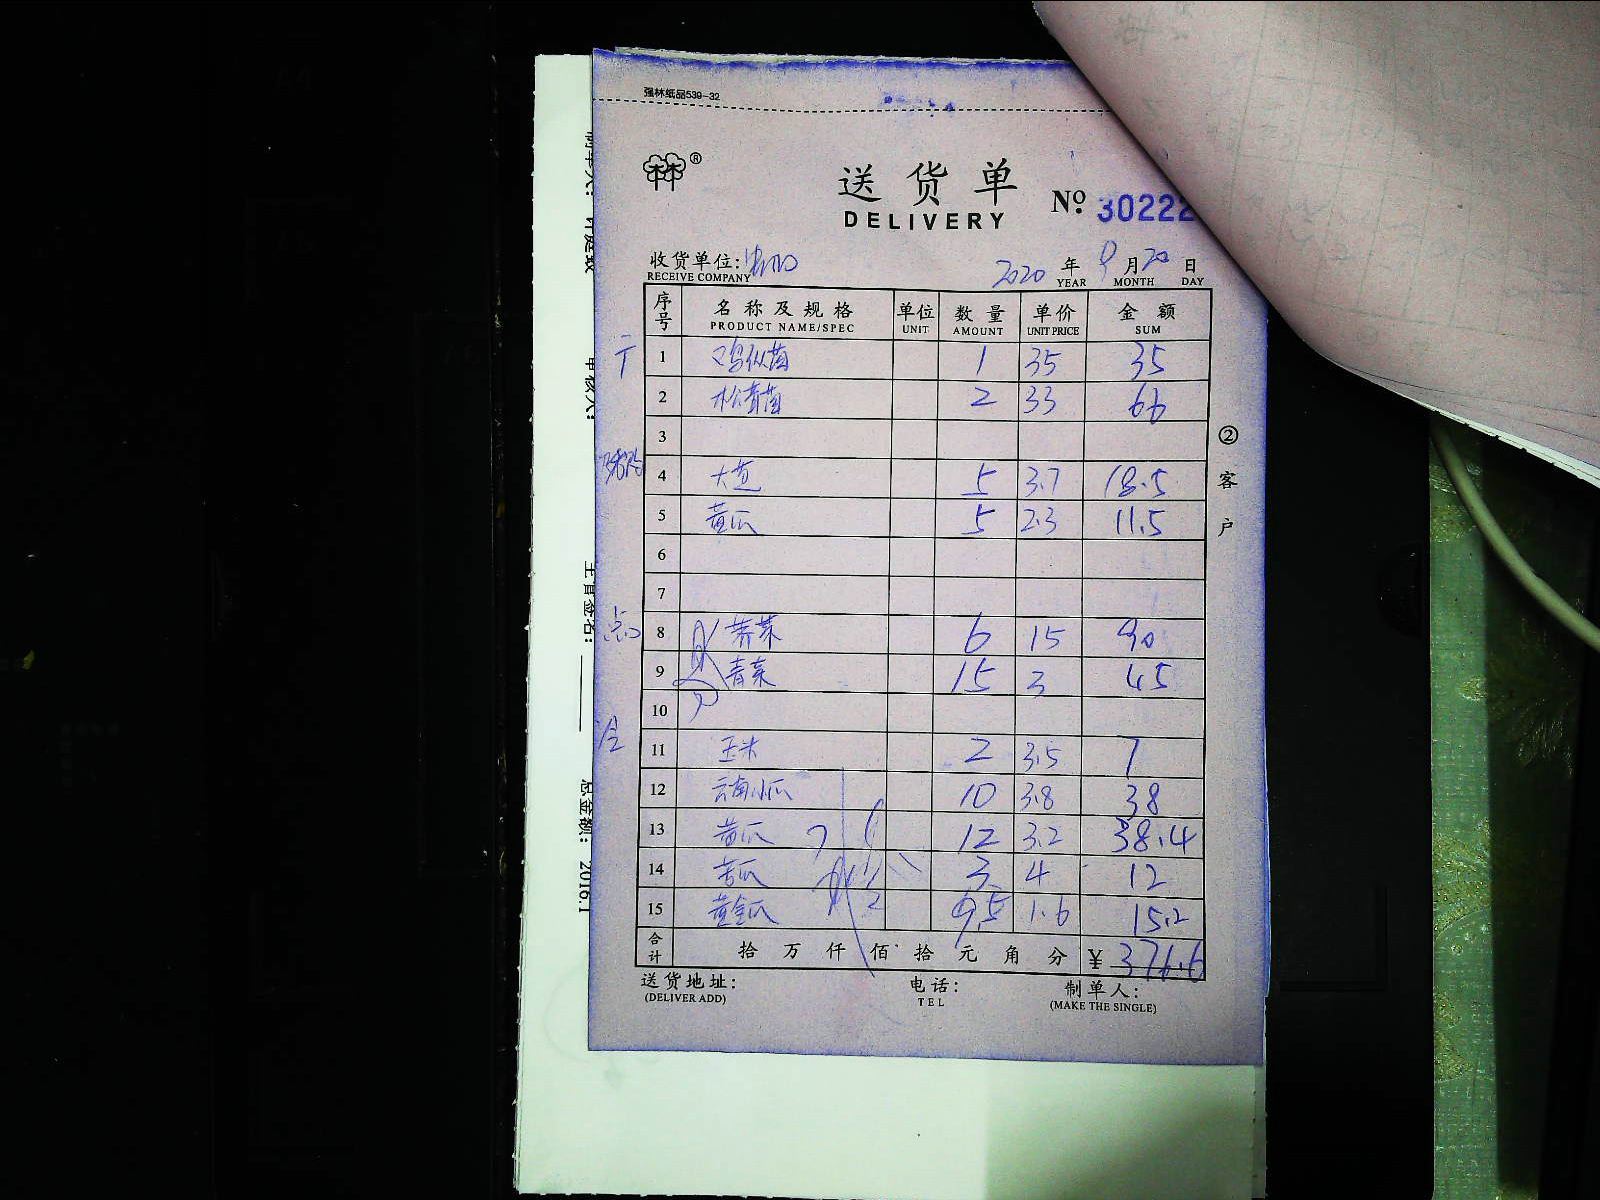 强林纸品539-32
林林®
送货单 Nº. 30222
DELIVERY
收货单位: 2020 年 9 月 20 日
RECEIVE COMPANY YEAR MONTH DAY
序号 名称及规格 单位 数量 单价 金额
PRODUCT NAME/SPEC UNIT AMOUNT UNIT PRICE SUM
干 1 鸡枞菌 1 35 35
2 松茸菌 2 33 66
3
4 大芒 5 3.7 18.5
5 黄瓜 5 2.3 11.5
6
7
点心 8 荠菜 6 15 90
9 青菜 15 3 45
10
冷 11 玉米 2 3.5 7
12 云南小瓜 10 3.8 38
13 黄瓜 12 3.2 38.4
14 苦瓜 3 4 12
15 黄金瓜 9.5 1.6 15.2
合计 拾 万 仟 佰 拾 元 角 分 ¥ 376.6
送货地址: 电话: 制单人:
(DELIVER ADD) TEL (MAKE THE SINGLE)
②客户
主管签名:
总金额: 2016.1